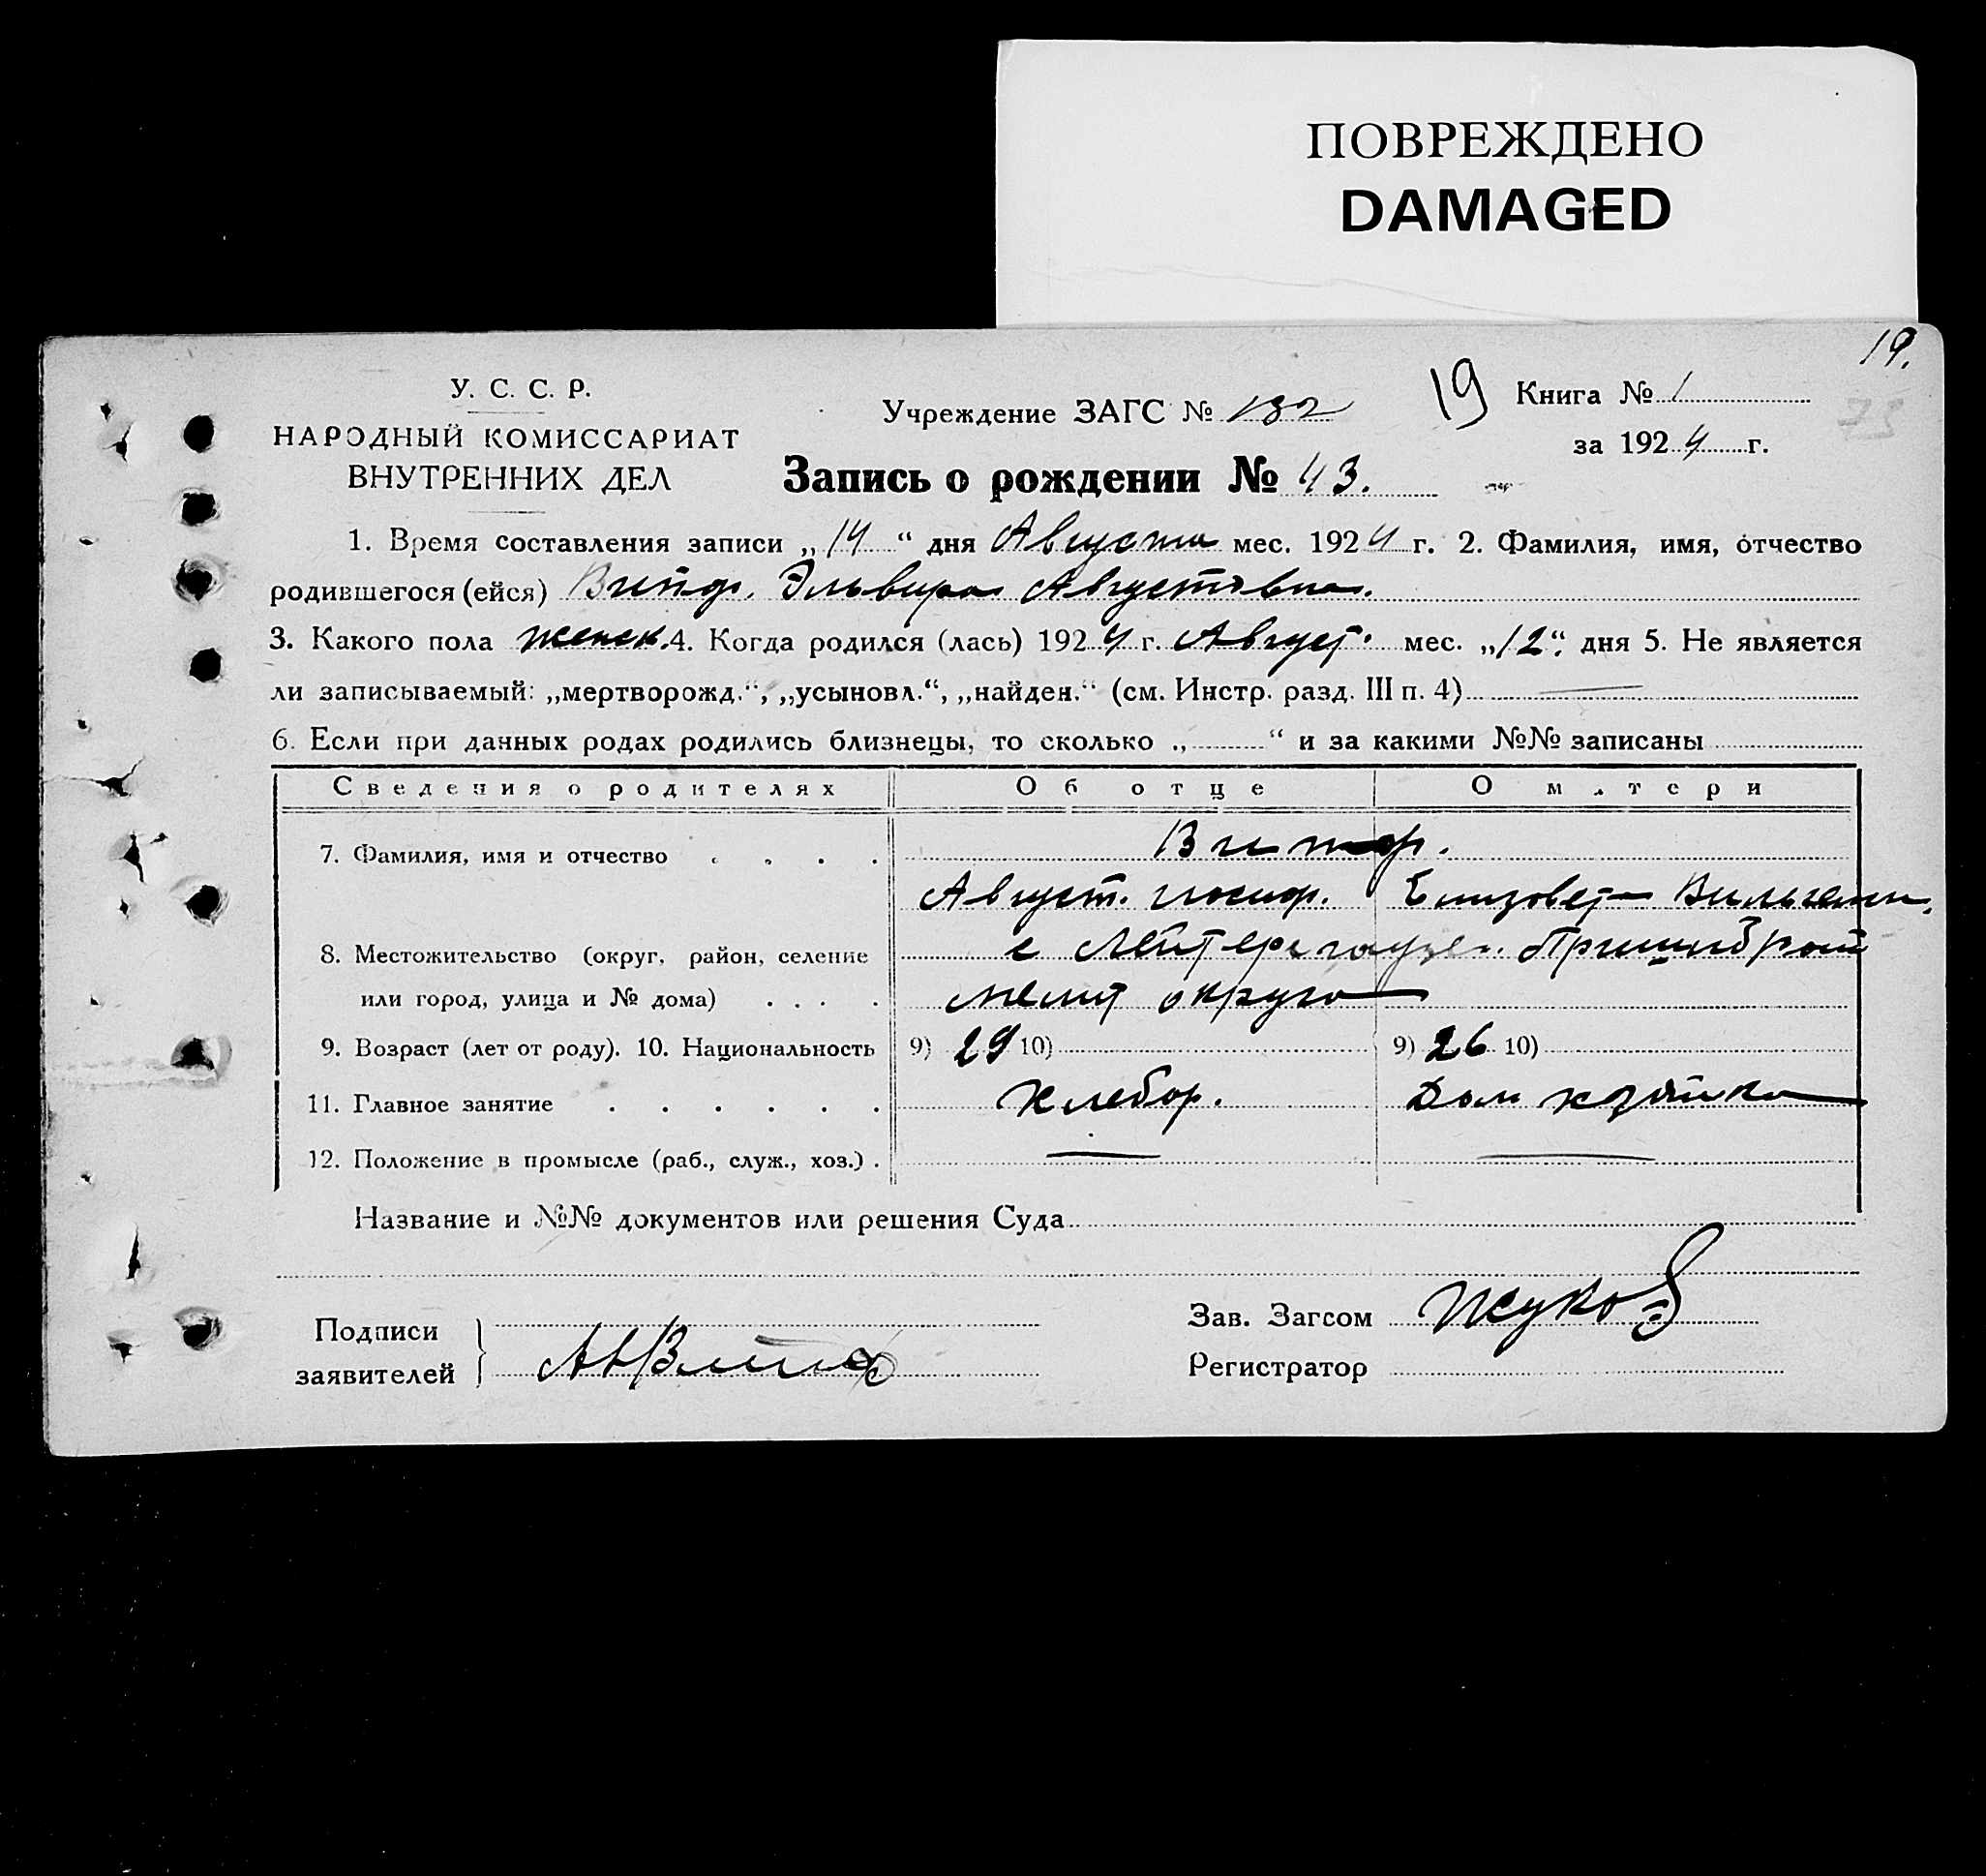 ПОВРЕЖДЕНО
DAMAGED
19.
У. С. С. Р.
НАРОДНЫЙ КОМИССАРИАТ
ВНУТРЕННИХ ДЕЛ
Учреждение ЗАГС № 132
19 Книга № 1
за 1924 г.
Запись о рождении № 43.
1. Время составления записи „14“ дня Августа мес. 1924 г. 2. Фамилия, имя, отчество
родившегося (ейся) Эльвира Августовна.
3. Какого пола женск. 4. Когда родился (лась) 1924 г. Август. мес. „12“. дня 5. Не является
ли записываемый: „мертворожд.“, „усыновл.“, „найден.“ (см. Инстр. разд. III п. 4)
6. Если при данных родах родились близнецы, то сколько „ “ и за какими №№ записаны
Сведения о родителях Об отце О матери
7. Фамилия, имя и отчество
Август. Иосиф. Елизовета Вильгельм.
8. Местожительство (округ, район, селение
или город, улица и № дома) Мелит округа
9. Возраст (лет от роду). 10. Национальность 9) 29 10) 9) 26 10)
11. Главное занятие Хлебор. Дом хозяйка
12. Положение в промысле (раб., служ., хоз.)
Название и №№ документов или решения Суда
Подписи
заявителей
Зав. Загсом Жуков
Регистратор